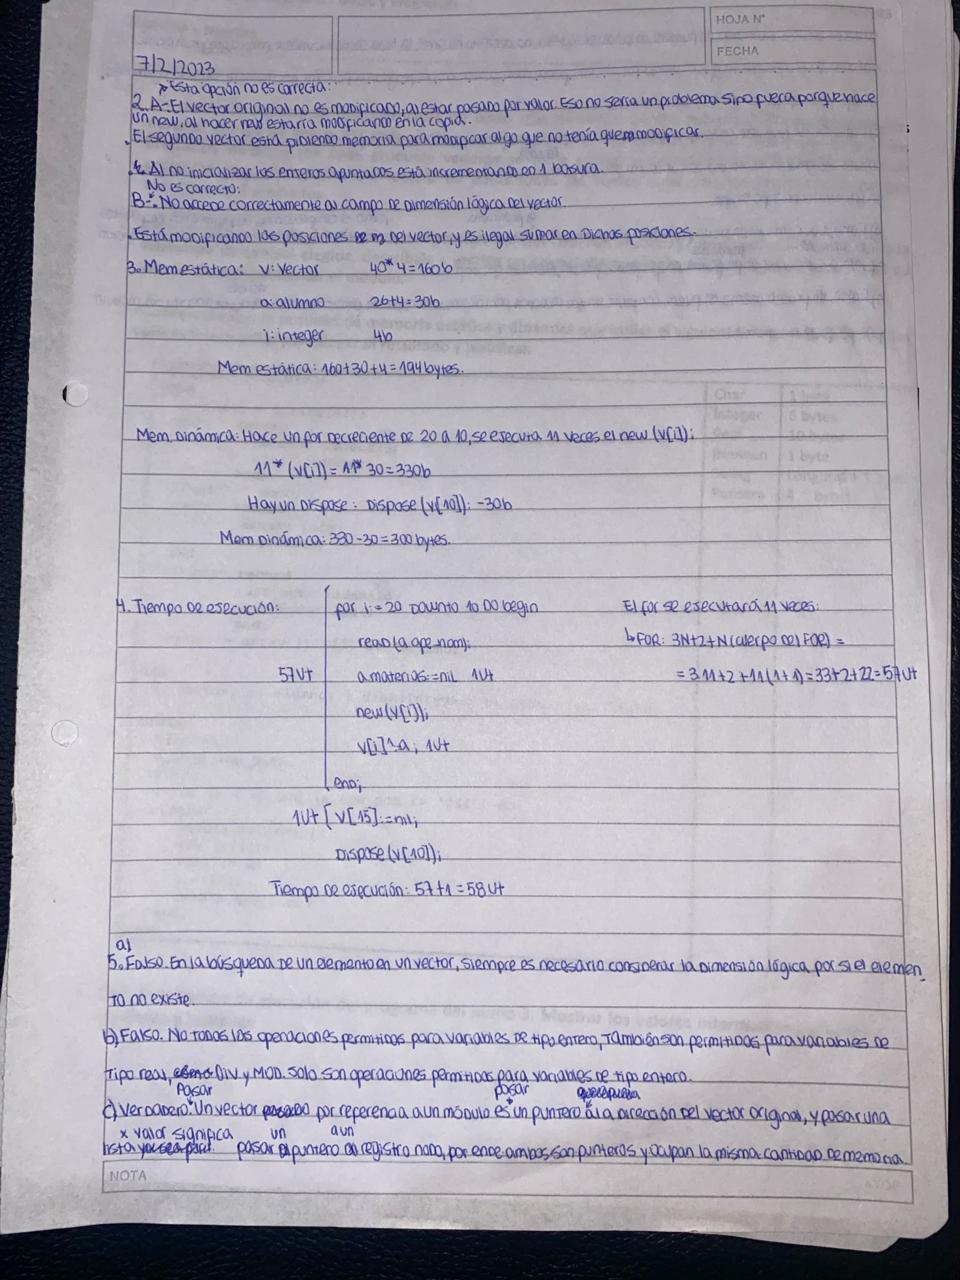 HOJA N°
FECHA
7/2/2023
*Esta opción no es correcta:
2. A- El vector original no es modificado, al estar pasado por valor. Eso no seria un problema sino fuera porque hace
un new, al hacer new estaría modificando en la copia.
. El segundo vector está pidiendo memoria para modificar algo que no tenía que modificar.
. Al no inicializar los enteros apuntados está incrementando en 1 basura.
No es correcto:
B-. No accede correctamente al campo de dimensión lógica del vector.
. Está modificando las posiciones del vector, y es ilegal sumar en dichas posiciones.
3. Mem estática: v: vector 40*4=160b
a: alumno 26+4=30b
i: integer 4b
Mem estática: 160+30+4=194 bytes.
Mem. Dinámica: Hace un for decreciente de 20 a 10, se ejecuta 11 veces el new (v[i]);
11* (v[i]) = 11* 30=330b
Hay un dispose: Dispose (v[10]); -30b
Mem Dinámica: 330-30=300 bytes.
4. Tiempo de ejecución: for i:=20 Downto 10 DO begin El for se ejecutará 11 veces:
read (a.ape_nom); ↳FOR: 3N+2+N(cuerpo del FOR) =
57Ut a.materias:=nil 1Ut = 3.11+2+11(1+1)=33+2+22=57Ut
new(v[i]);
v[i]^:a; 1Ut
end;
1Ut [ v[15]:=nil;
Dispose (v[10]);
Tiempo de ejecución: 57+1=58Ut
a)
5. Falso. En la búsqueda de un elemento en un vector, siempre es necesario considerar la dimensión lógica, por si el elemen_
to no existe.
b) Falso. No todas las operaciones permitidas para variables de tipo entero, también son permitidas para variables de
tipo real, como DIV y MOD. Solo son operaciones permitidas para variables de tipo entero.
Pasar pasar que apunta
c) Verdadero. Un vector pasado por referencia a un módulo es un puntero a la dirección del vector original, y pasar una
x valor significa un a un
lista pasar puntero registro nodo, por ende ambas son punteros y ocupan la misma cantidad de memoria.
NOTA